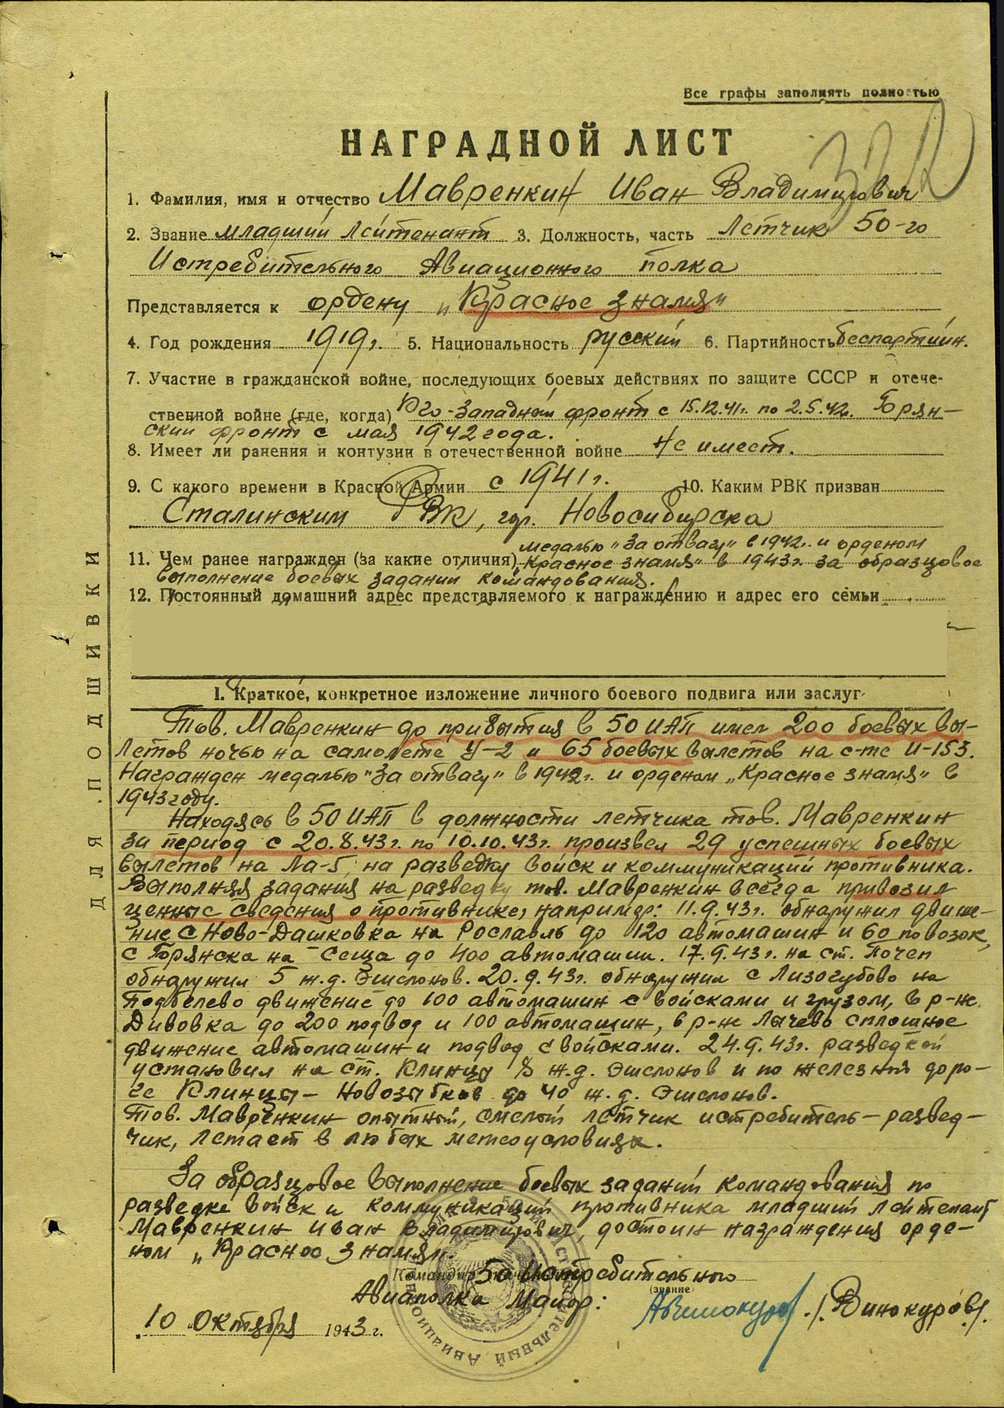 Все графы заполнять полностью
НАГРАДНОЙ ЛИСТ
1. Фамилия, имя и отчество Мавренкин Иван Владимирович
2. Звание младший лейтенант 3. Должность, часть Летчик 50-го
Истребительного Авиационного полка
Представляется к ордену „Красное знамя"
4. Год рождения 1919 г. 5. Национальность русский 6. Партийность беспартийн.
7. Участие в гражданской войне, последующих боевых действиях по защите СССР и отече-
ственной войне (где, когда) Юго-Западный фронт с 15.12.41г. по 2.5.42. Брян-
ский фронт с мая 1942 года.
8. Имеет ли ранения и контузии в отечественной войне Не имеет.
9. С какого времени в Красной Армии с 1941 г. 10. Каким РВК призван
Сталинским РВК, гор. Новосибирска
11. Чем ранее награжден (за какие отличия) медалью "За отвагу" в 1942г. и орденом
„Красное знамя" в 1943г. за образцовое
выполнение боевых заданий командования.
12. Постоянный домашний адрес представляемого к награждению и адрес его семьи
ДЛЯ ПОДШИВКИ
I. Краткое, конкретное изложение личного боевого подвига или заслуг
Тов. Мавренкин до прибытия в 50 ИАП имел 200 боевых вы-
летов ночью на самолете У-2 и 65 боевых вылетов на с-те И-153.
Награжден медалью "За отвагу" в 1942г. и орденом „Красное знамя" в
1943 году.
Находясь в 50 ИАП в должности летчика тов. Мавренкин
за период с 20.8.43г. по 10.10.43г. произвел 29 успешных боевых
вылетов на Ла-5, на разведку войск и коммуникаций противника.
Выполняя задания на разведку тов. Мавренкин всегда привозил
ценные сведения о противнике, например: 11.9.43г. обнаружил движе-
ние с Ново-Дашковка на Рославль до 120 автомашин и 60 повозок,
с Брянска на Сеща до 400 автомашин. 17.9.43г. на ст. Почеп
обнаружил 5 ж.д. эшелонов. 20.9.43г. обнаружил с Лизогубово на
Подбелево движение до 100 автомашин с войсками и грузом, в р-не
Дивовка до 200 подвод и 100 автомашин, в р-не Лычево сплошное
движение автомашин и подвод с войсками. 24.9.43г. разведкой
установил на ст. Клинцы 8 ж.д. эшелонов и по железной доро-
ге Клинцы – Новозыбков до 40 ж.д. эшелонов.
Тов. Мавренкин опытный, смелый летчик истребитель – развед-
чик, летает в любых метеоусловиях.
За образцовое выполнение боевых заданий командования по
разведке войск и коммуникаций противника младший лейтенант
Мавренкин Иван Владимирович, достоин награждения орде-
ном „Красное знамя".
Командир 50 Истребительного
(звание)
Авиаполка Майор: /Винокуров/.
10 Октября 1943 г.